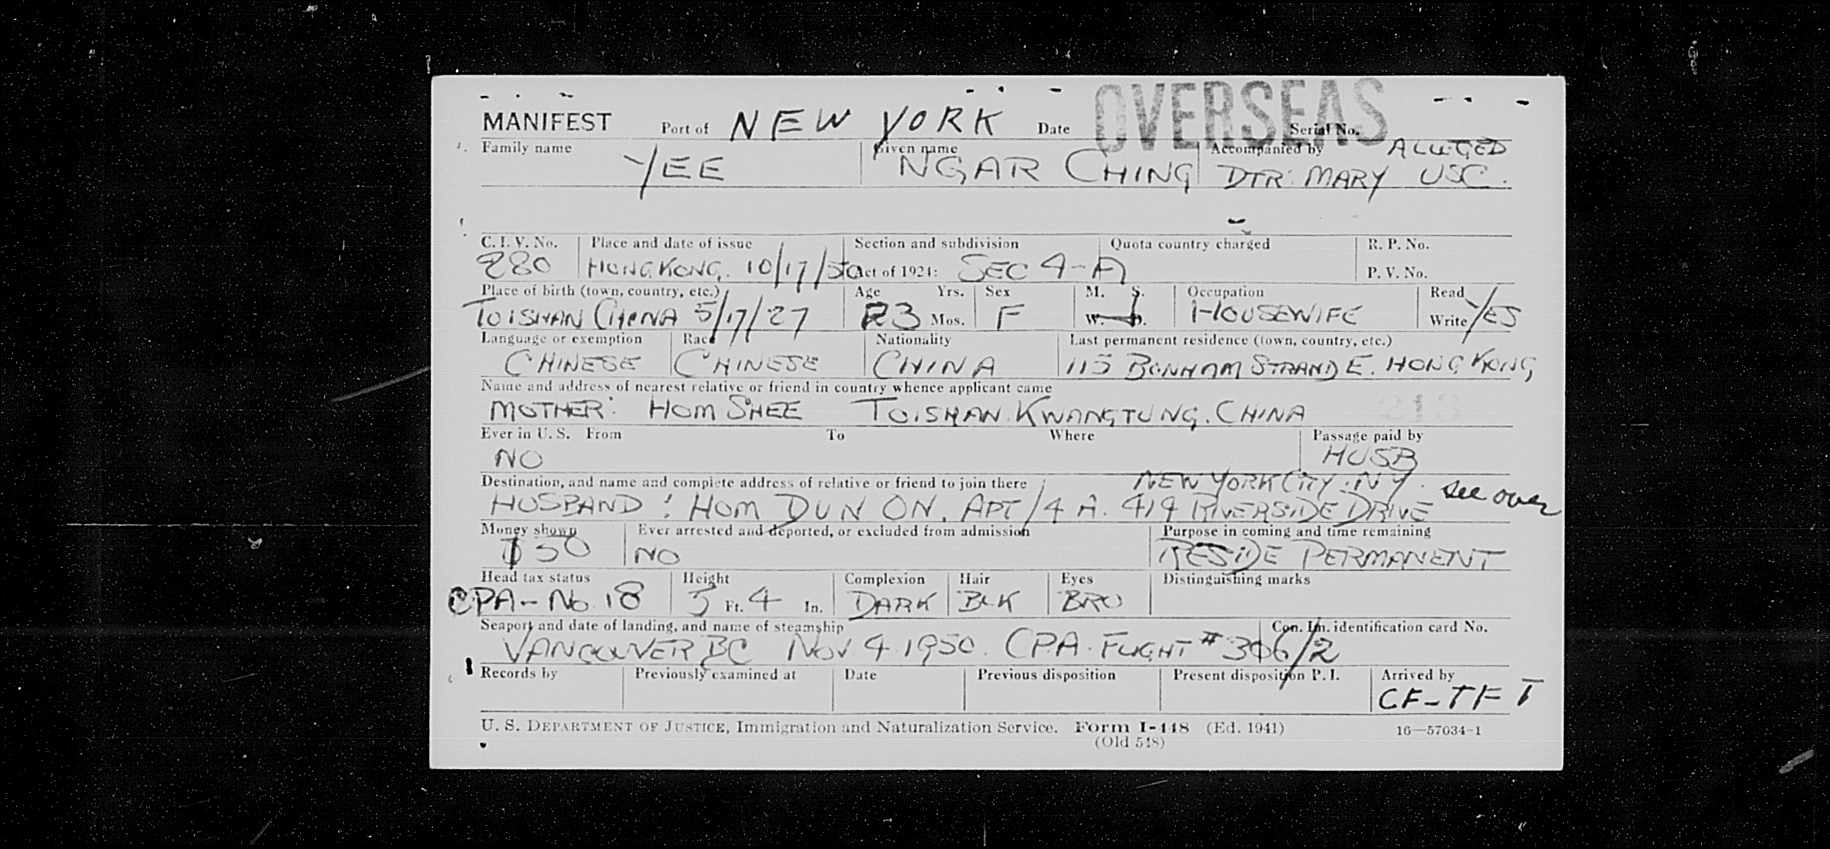 MANIFEST Port of NEW YORK Date OVERSEAS Serial No.
Family name YEE Given name NGAR CHING Accompanied by ALLEGED DTR: MARY USC.
C. I. V. No. Place and date of issue Section and subdivision Quota country charged R. P. No.
280 HONG KONG. 10/17/50 Act of 1924: SEC 4-A P. V. No.
Place of birth (town, country, etc.) Age Yrs. Sex M. S. Occupation Read
TOISHAN CHINA 5/17/27 23 Mos. F W. D. HOUSEWIFE Write YES
Language or exemption Race Nationality Last permanent residence (town, country, etc.)
CHINESE CHINESE CHINA 115 BONHAM STRAND E. HONG KONG
Name and address of nearest relative or friend in country whence applicant came
MOTHER: HOM SHEE TOISHAN. KWANGTUNG. CHINA 213
Ever in U. S. From To Where Passage paid by
NO HUSB
Destination, and name and complete address of relative or friend to join there NEW YORK CITY. N Y. see over
HUSBAND: HOM DUN ON. APT/4 A. 419 RIVERSIDE DRIVE
Money shown Ever arrested and deported, or excluded from admission Purpose in coming and time remaining
$50 NO RESIDE PERMANENT
Head tax status Height Complexion Hair Eyes Distinguishing marks
CPA-No. 18 5 Ft. 4 In. DARK BLK BRO
Seaport and date of landing, and name of steamship Con. Im. identification card No.
VANCOUVER BC NOV 4. 1950. CPA. FLIGHT # 306/2
Records by Previously examined at Date Previous disposition Present disposition P. I. Arrived by
CF-TFT
U. S. DEPARTMENT OF JUSTICE, Immigration and Naturalization Service. Form I-448 (Ed. 1941) 16—57034-1
(Old 548)